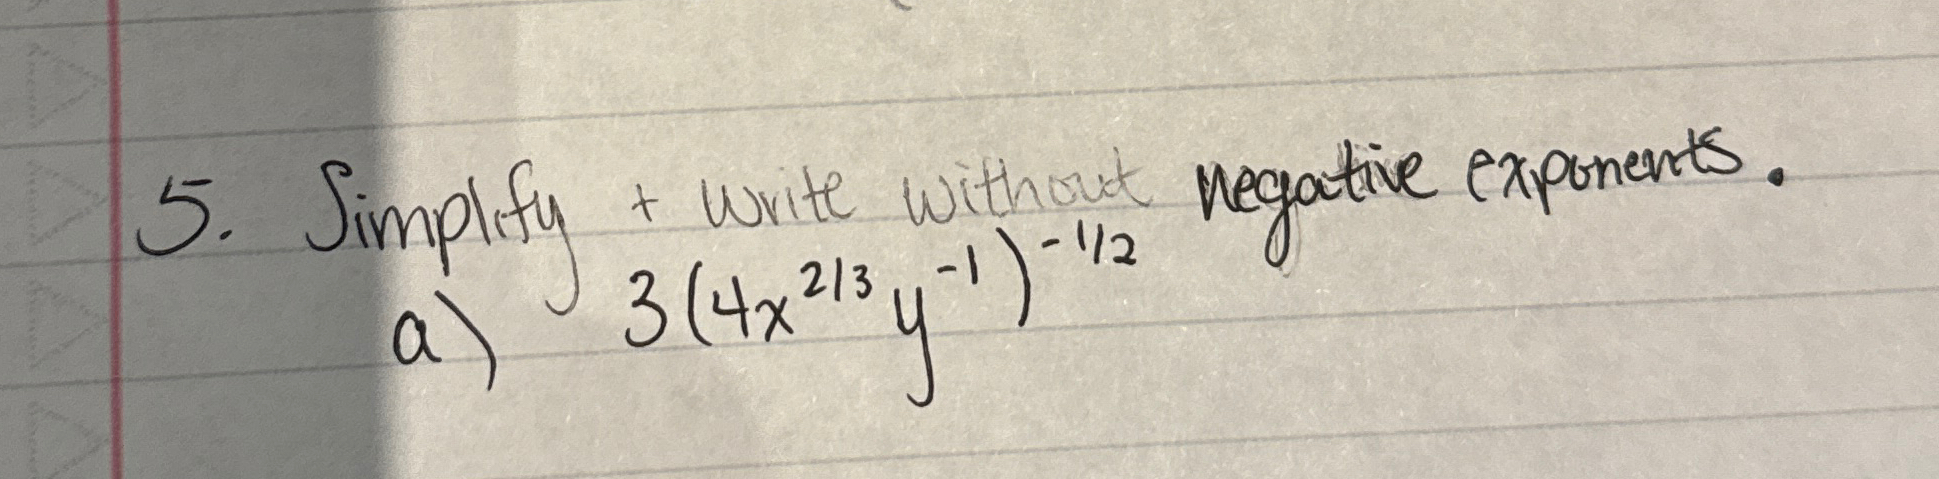 5. Simplify + write without negative exponents.
a) 3(4x^{2/3} y^{-1})^{-1/2}